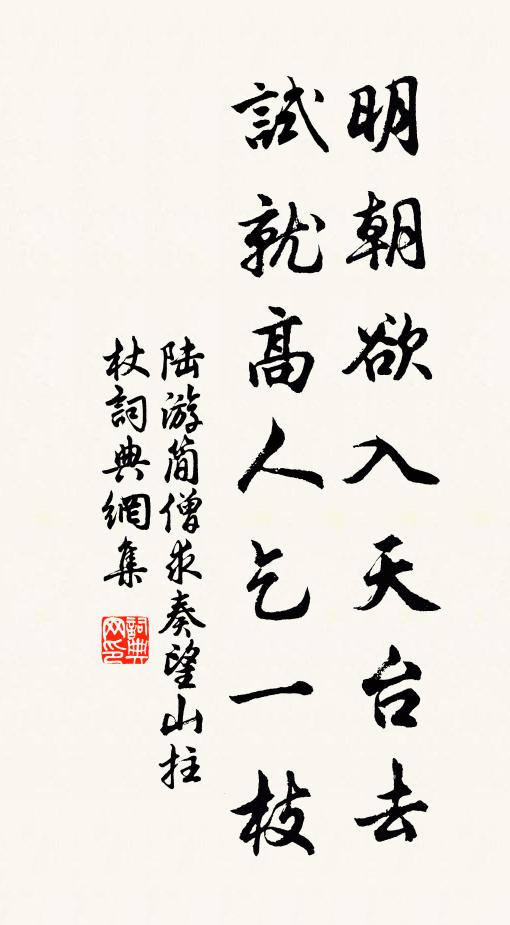 明朝欲入天台去
試就高人乞一枝
陆游簡僧求奏望山拄
杖詞典網集
詞典网印